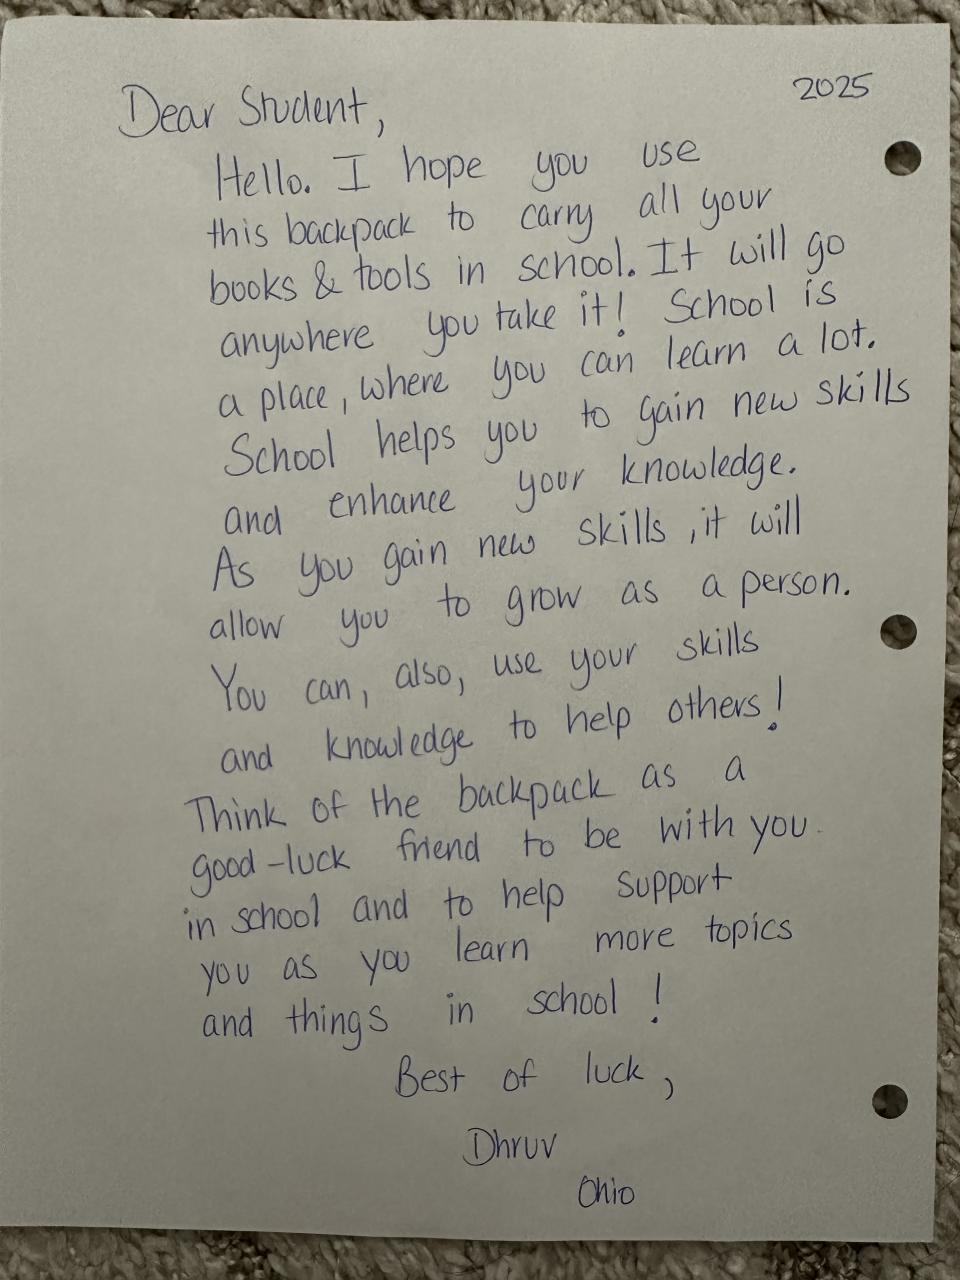 2025
Dear Student,
Hello. I hope you use
this backpack to carry all your
books & tools in school. It will go
anywhere you take it! School is
a place, where you can learn a lot.
School helps you to gain new skills
and enhance your knowledge.
As you gain new skills, it will
allow you to grow as a person.
You can, also, use your skills
and knowledge to help others!
Think of the backpack as a
good-luck friend to be with you
in school and to help support
you as you learn more topics
and things in school!
Best of luck,
Dhruv
Ohio